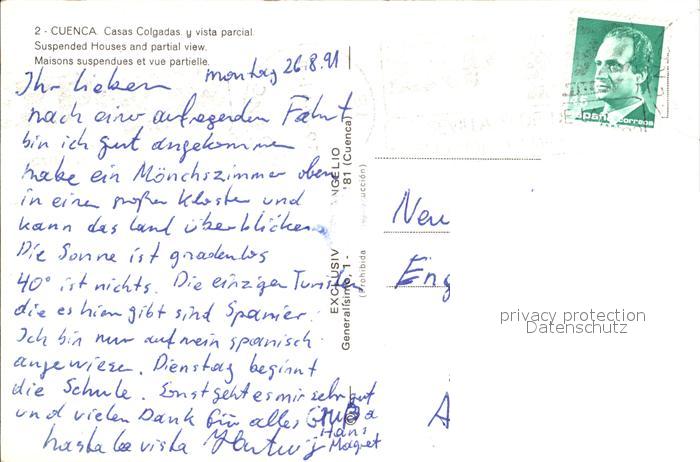 2 - CUENCA. Casas Colgadas y vista parcial.
Suspended Houses and partial view.
Maisons suspendues et vue partielle.
montag 26.8.91
Ihr lieben
nach einer aufregenden Fahrt
bin ich gut angekommen
habe ein Mönchszimmer oben
in einem großen Kloster und
kann das Land überblicken.
Die Sonne ist gnadenlos
40° ist nichts. Die einzigen Turisten
die es hier gibt sind Spanier.
Ich bin nur auf mein spanisch
angewiesen. Dienstag beginnt
die Schule. Sonst geht es mir sehr gut
und vielen Dank für alles
hasta la vista Hartwig
Hans
EXCLUSIV
ANGELIO
Generalísimo, 1 -
'81 (Cuenca)
(Prohibida
España correos
Neu
Eng
A
privacy protection
Datenschutz